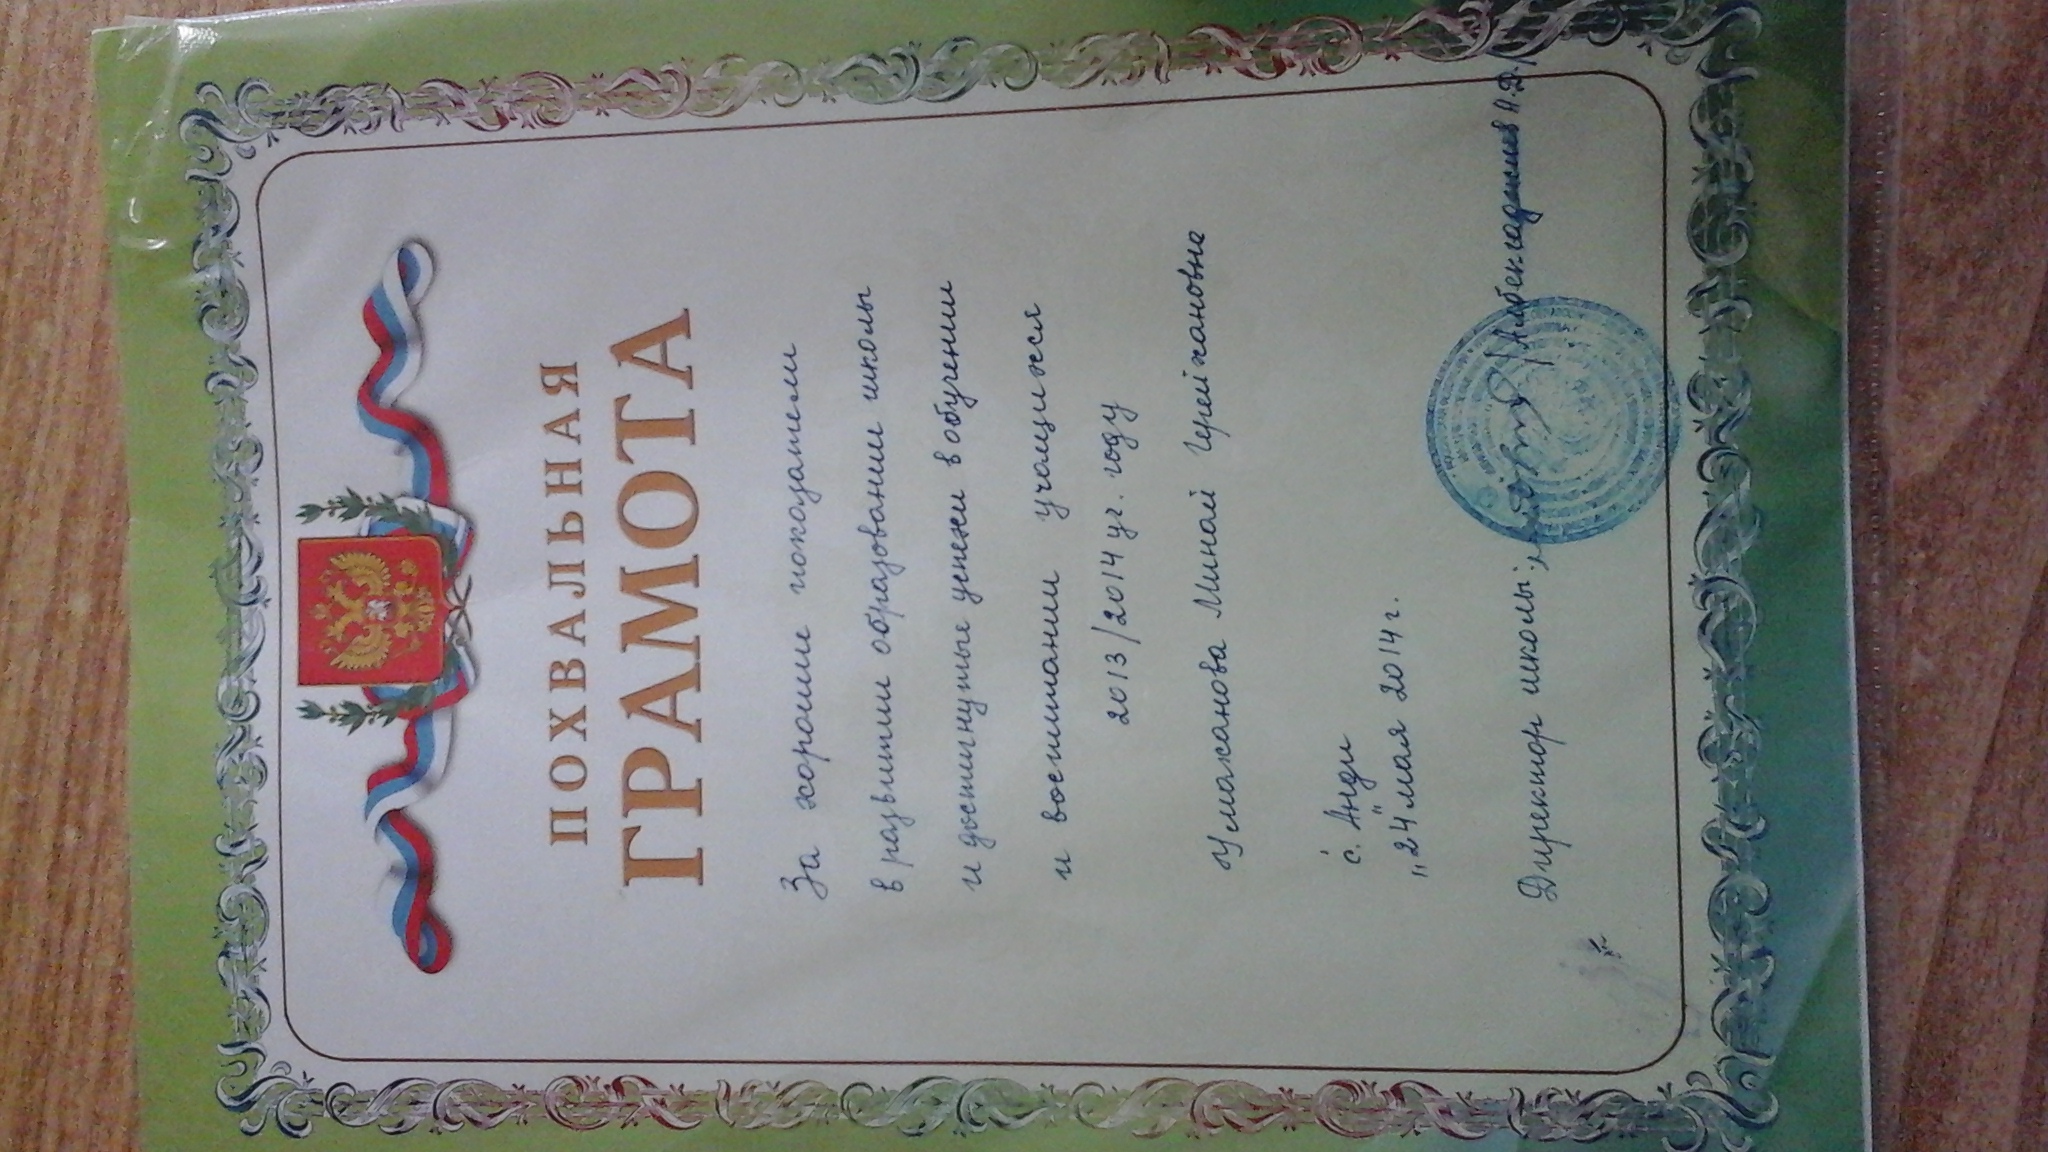 ПОХВАЛЬНАЯ
ГРАМОТА
За хорошие показатели
в развитии образовании школы
и достигнутые успехи в обучении
и воспитании учащихся
2013/2014 уг. году
Умаханова Минай Герейхановна
с. Анди
„24" мая 2014 г.
Директор школы: